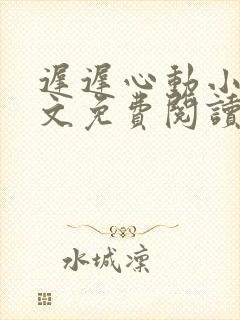 遲遲心動小
文免費閱讀
水城凜